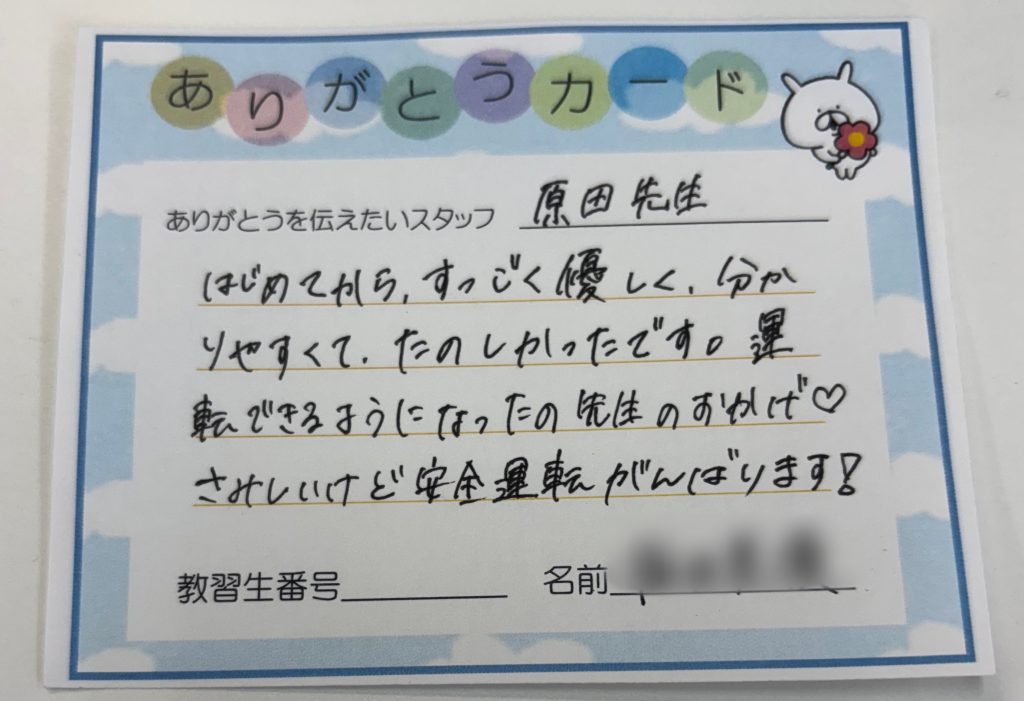 ありがとうカード
ありがとうを伝えたいスタッフ 原田先生
はじめてから、すっごく優しく、分か
りやすくて、たのしかったです。運
転できるようになったの先生のおかげ♡
さみしいけど安全運転がんばります!
教習生番号 名前